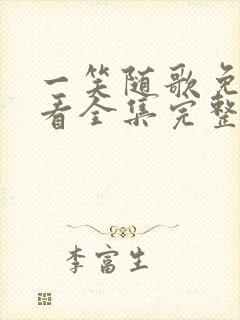 一笑随歌免
看全集完整
李富生